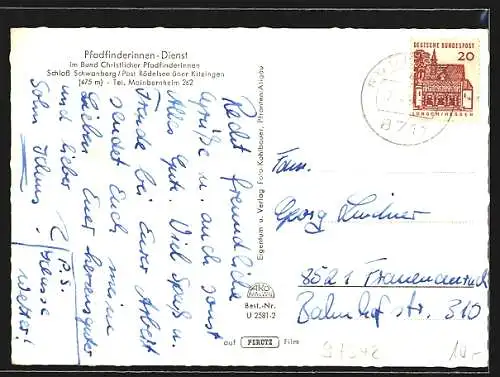 Pfadfinderinnen-Dienst
im Bund Christlicher Pfadfinderinnen
Schloß Schwanberg/Post Rödelsee über Kitzingen
(475 m) - Tel. Mainbernheim 262
Recht freundliche
Grüße u. auch sonst
Alles Gute. Viel Spaß u.
Freude bei Eurer Arbeit
sendet Euch meine
Lieben, Euer herzensguter
und lieber
Sohn Klaus.
P.S.
Wetter!
Eigentum u. Verlag Foto-Kohlbauer, Pfronten/Allgäu
Best.-Nr.
U 2581-2
auf PERUTZ Film
DEUTSCHE BUNDESPOST
20
LORSCH/HESSEN
871
Fam.
Georg Lindner
8521 Frauenaurach
Bahnhofstr. 310
10,-